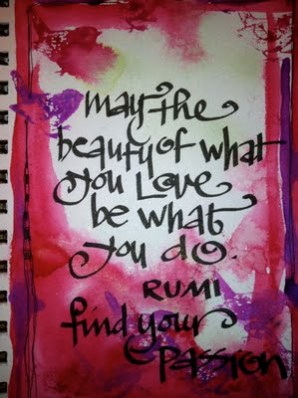 may the
beauty of what
you Love
be what
you do.
RUMI
find your
passion